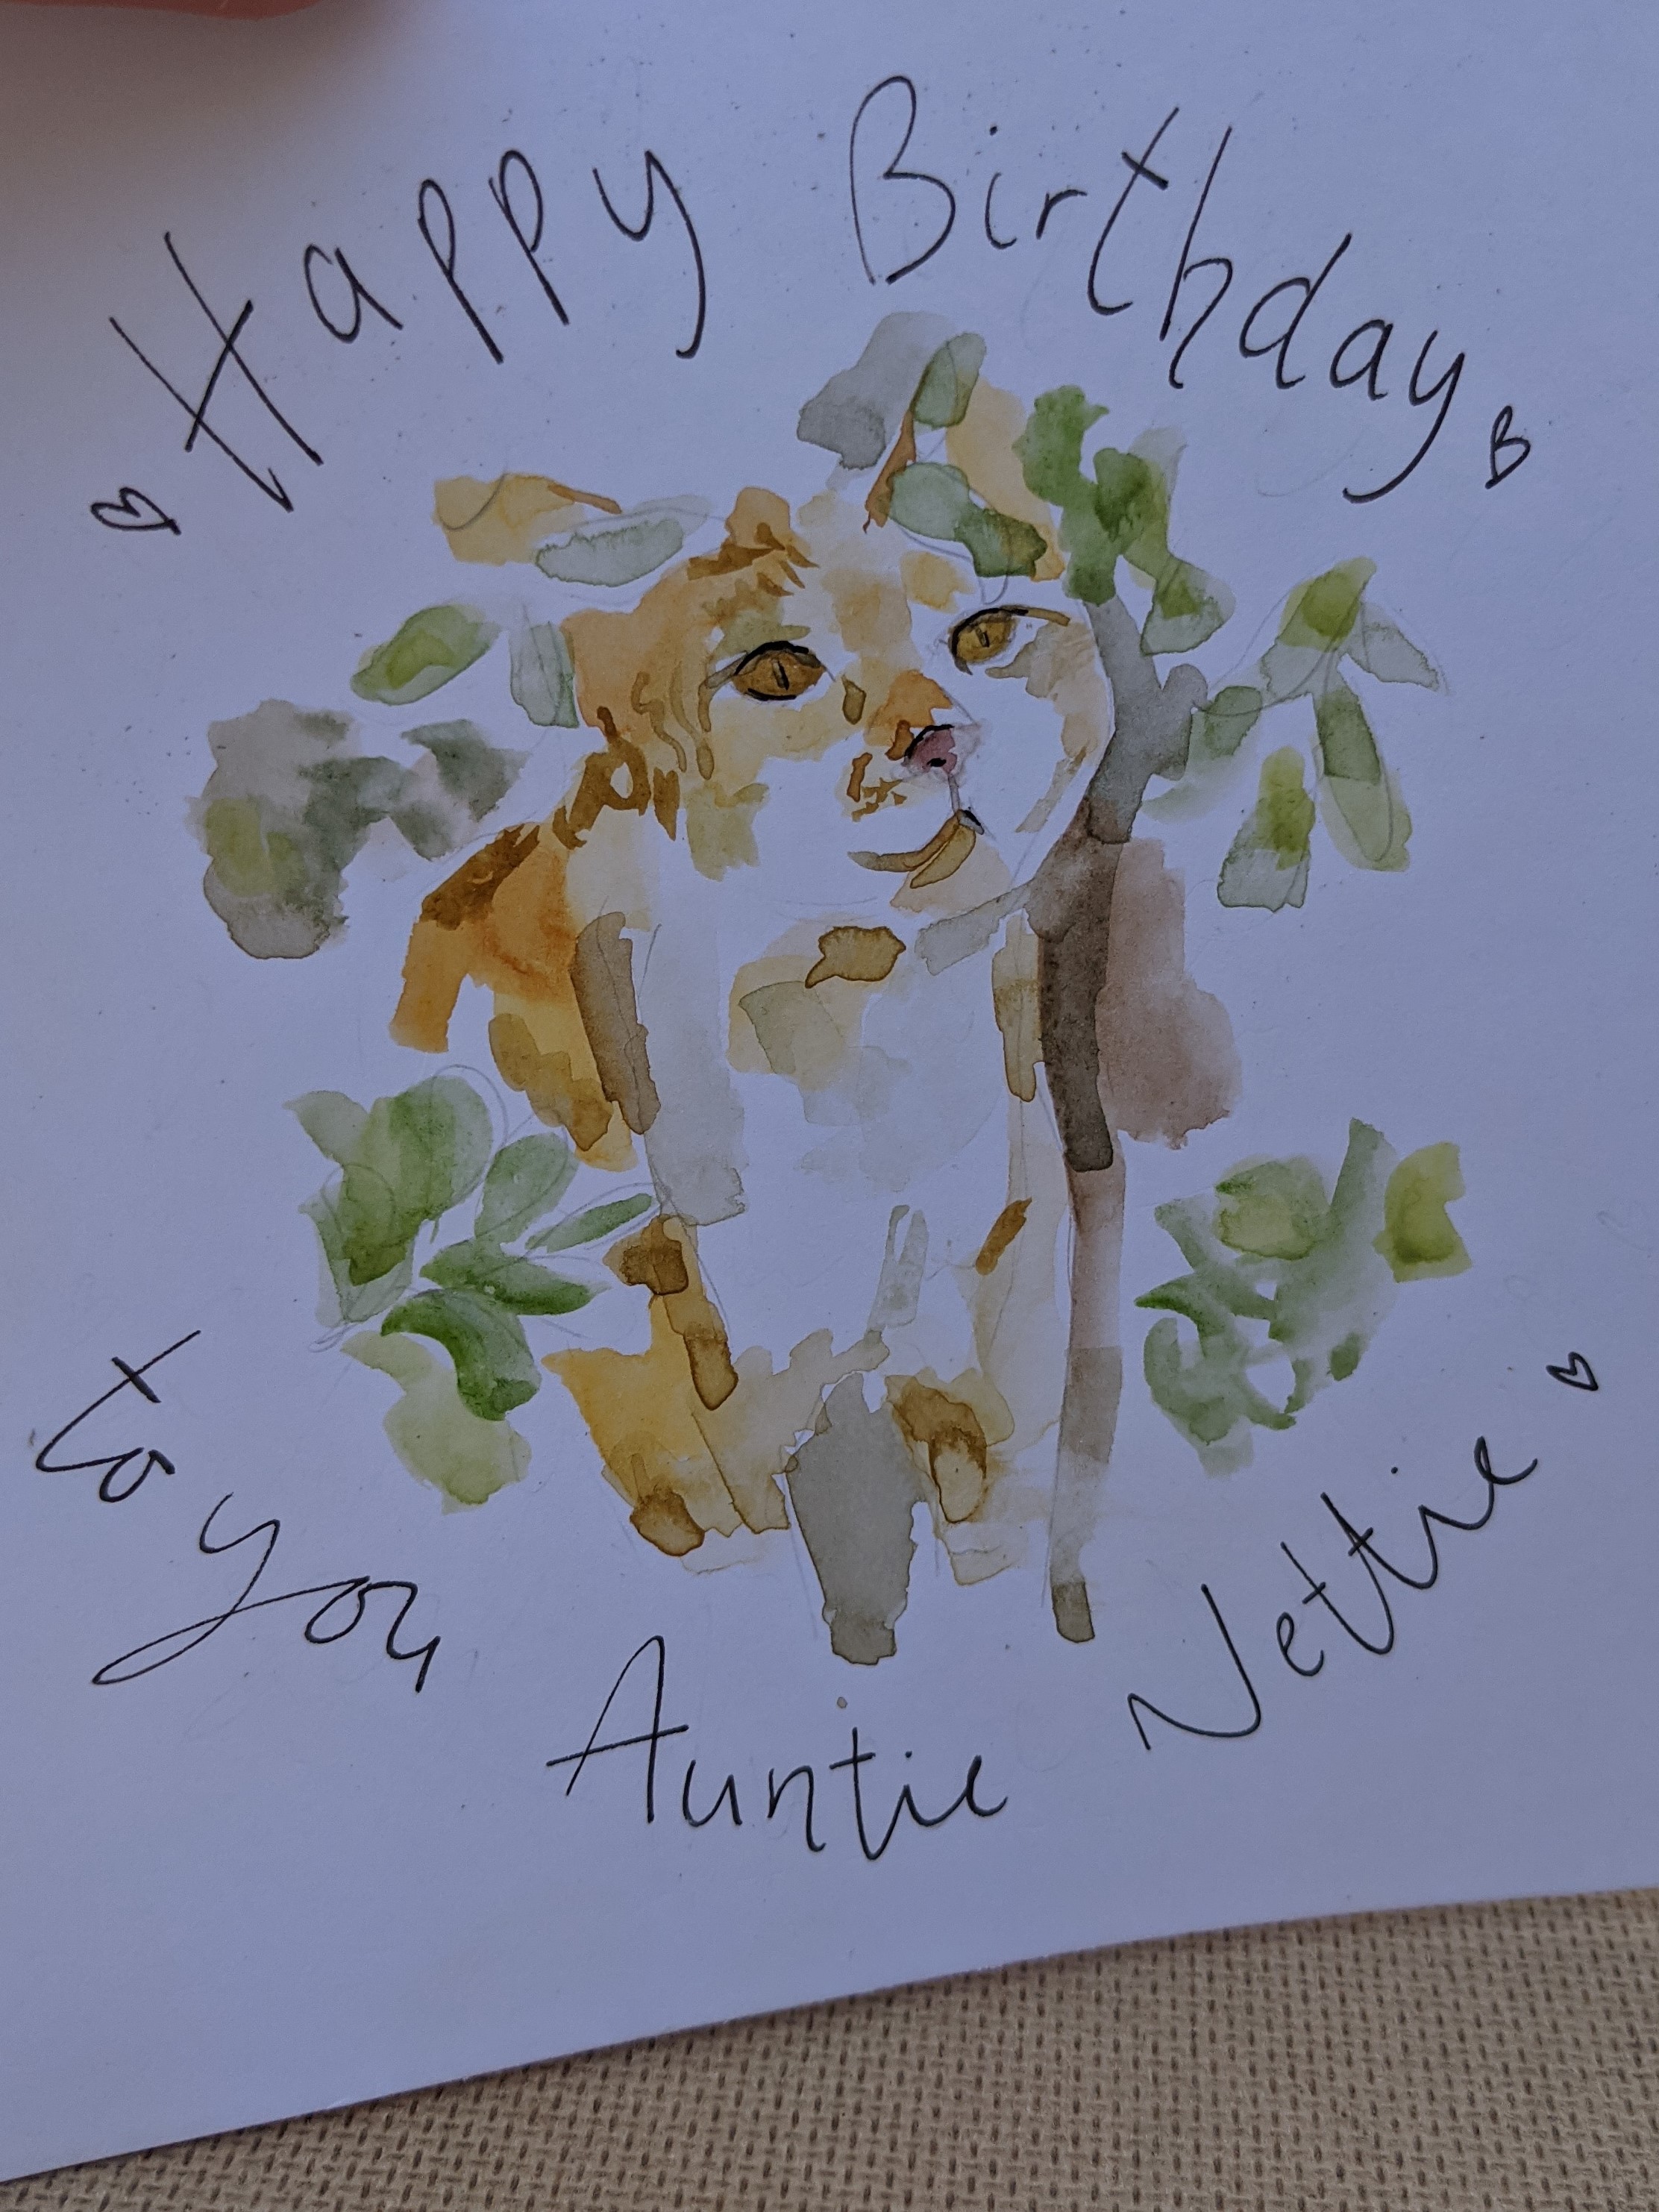 Happy Birthday
to you Auntie Nettie